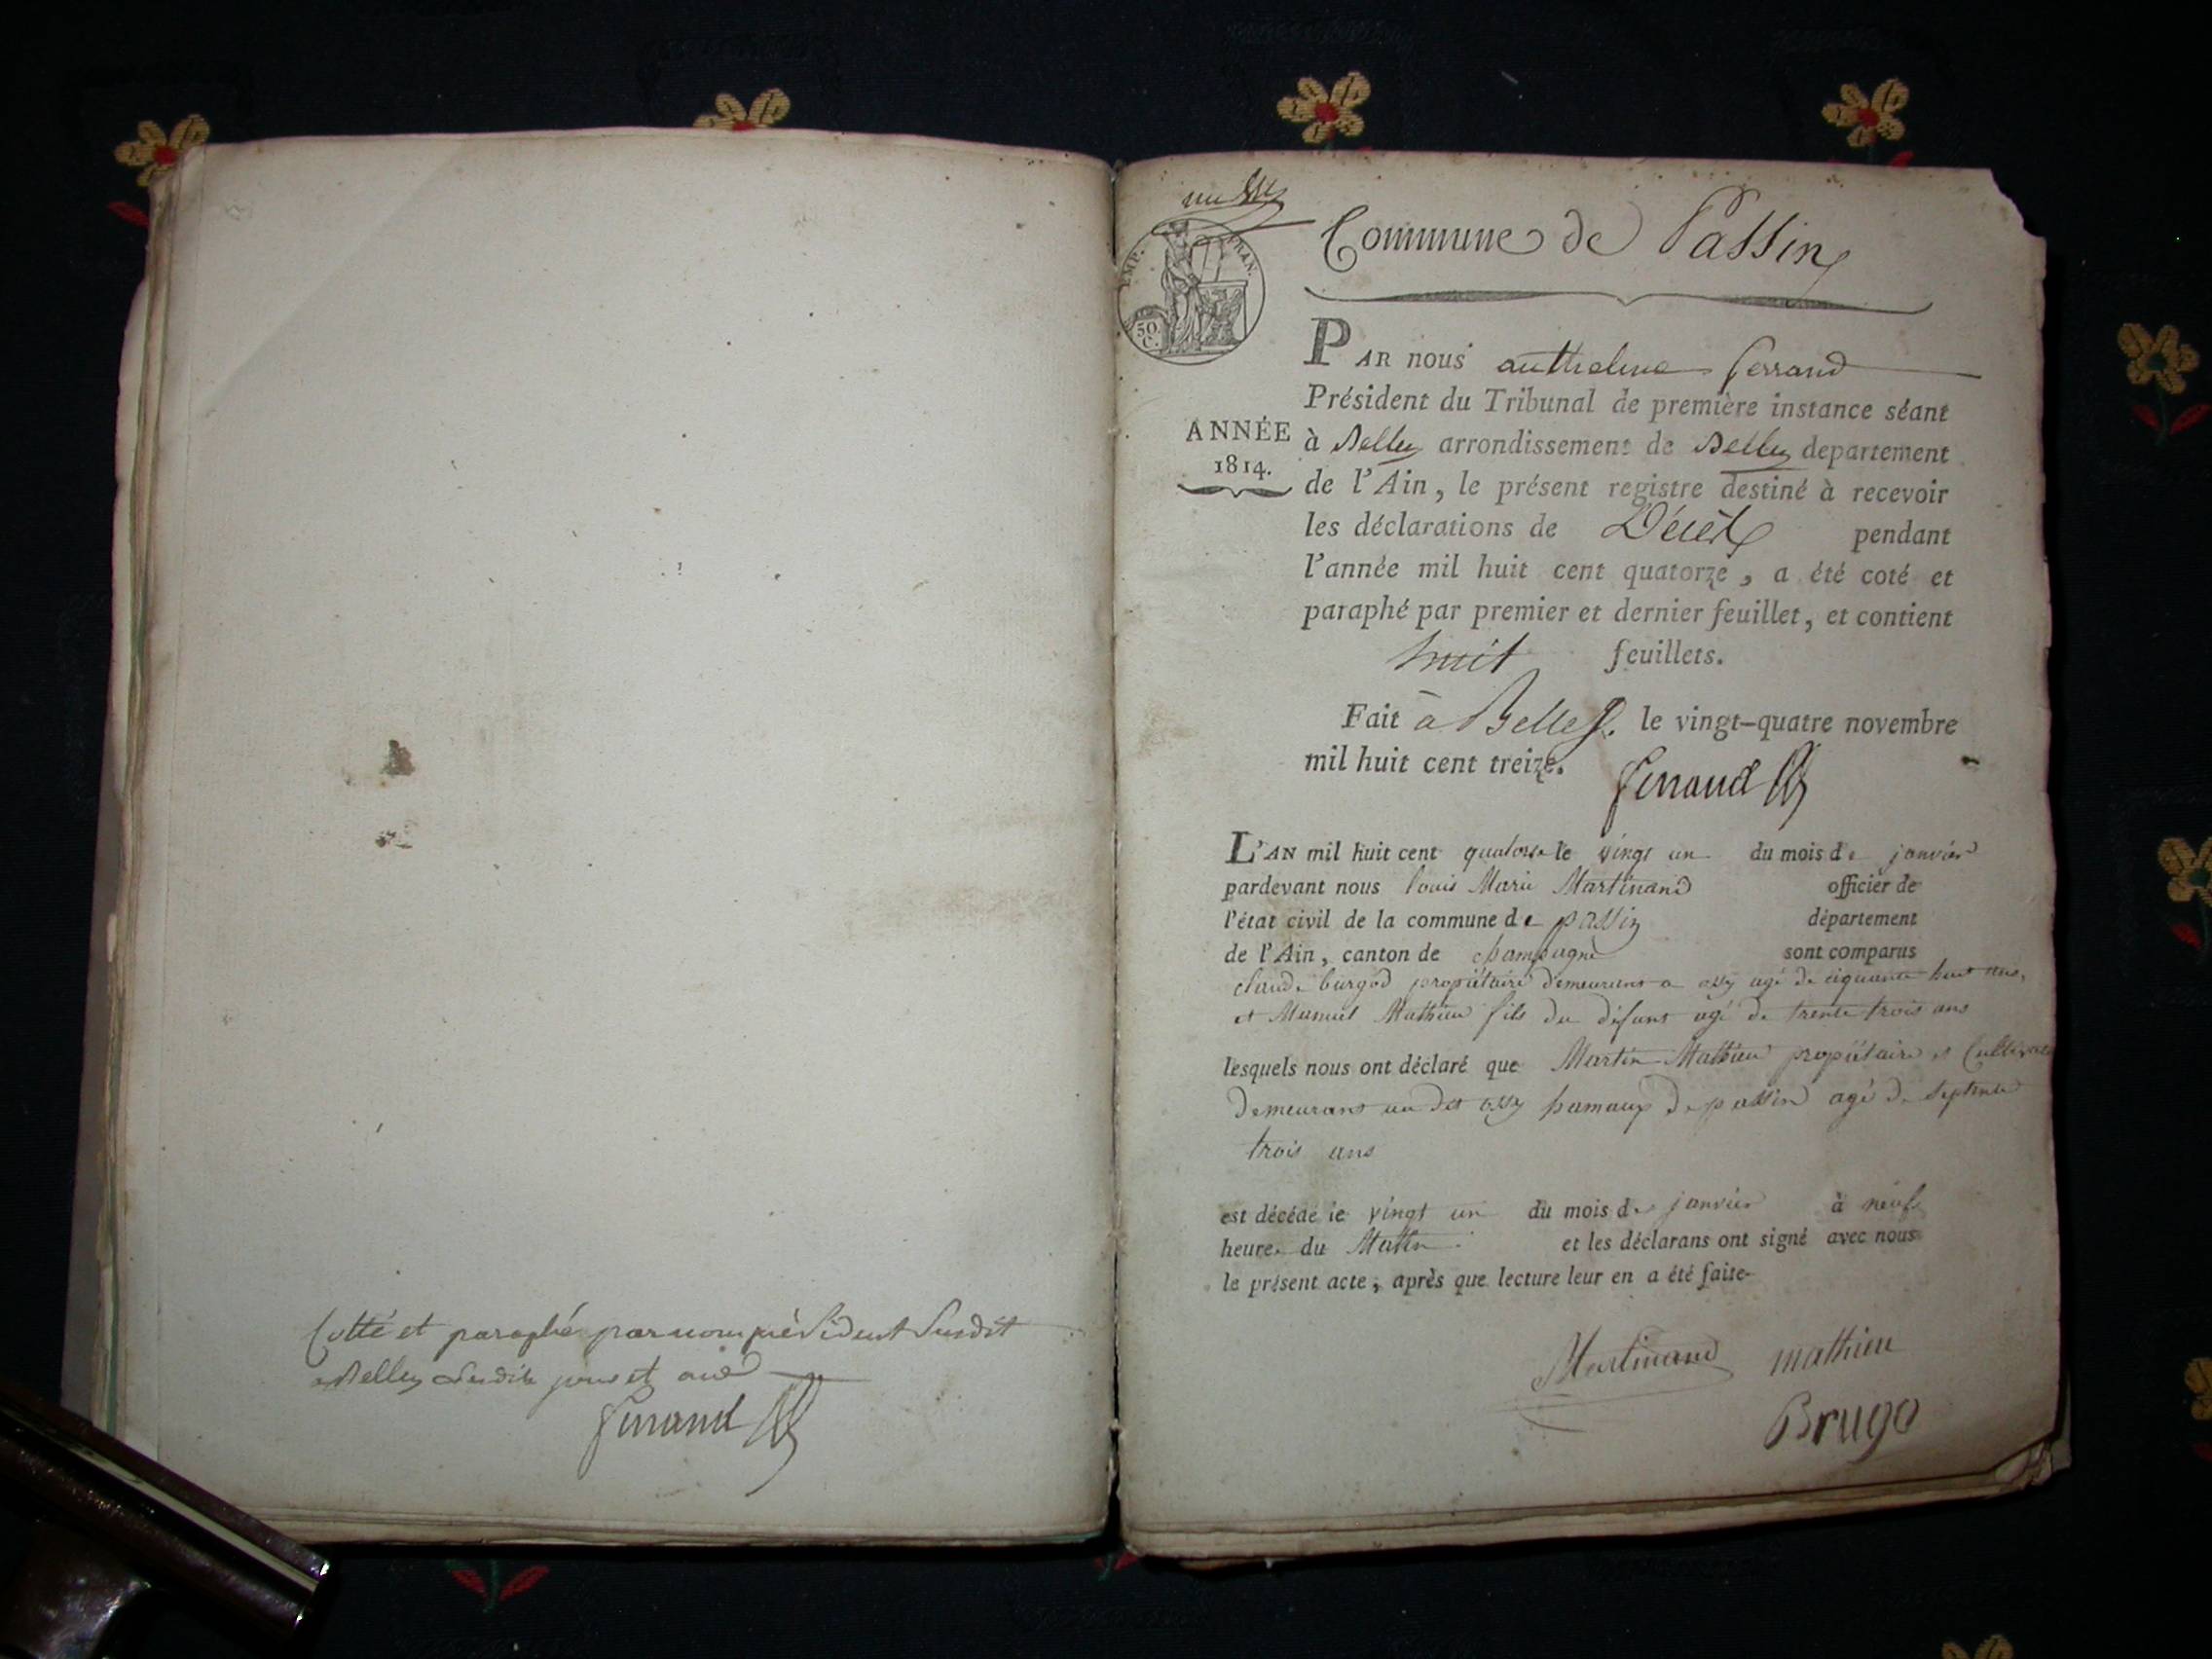 Cotté et paraphé par nous président Susdit
a Belley Lesdits jour et an
ferrand
un
EMP. FRAN.
50.
C.
Commune de Passin
ANNÉE
1814.
PAR nous anthelme ferrand
Président du Tribunal de première instance séant
à Belley arrondissement de Belley département
de l'Ain, le présent registre destiné à recevoir
les déclarations de Décès pendant
l'année mil huit cent quatorze, a été coté et
paraphé par premier et dernier feuillet, et contient
huit feuillets.
Fait à Belley. le vingt-quatre novembre
mil huit cent treize.
ferrand
L'AN mil huit cent quatorse le vingt un du mois de janvier
pardevant nous louis Marie Martinand officier de
l'état civil de la commune de passin département
de l'Ain, canton de champagne sont comparus
claude burgod propiétaire demeurant a ossy agé de ciquante huit ans,
et Mamiel Mathieu fils du défunt agé de trente trois ans
lesquels nous ont déclaré que Martin Mathieu propiétaire et Cultivat
demeurant au dit ossy hamaux de passin agé de septente
trois ans
est décédé le vingt un du mois de janvier à neuf
heure du Matin et les déclarans ont signé avec nous
le présent acte, après que lecture leur en a été faite
Martinand mathieu
Brugo